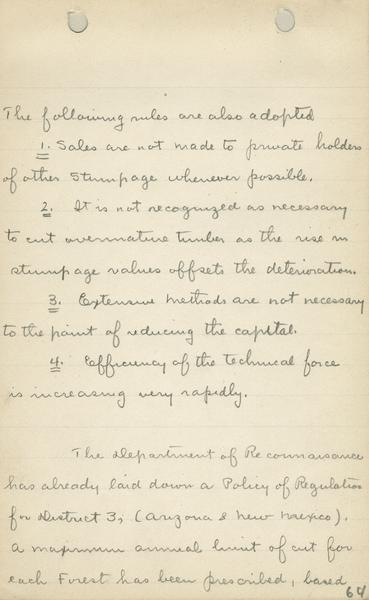 The following rules are also adopted
1. Sales are not made to private holders
of other stumpage whenever possible.
2. It is not recognized as necessary
to cut overmature timber as the rise in
stumpage values offsets the deterioration.
3. Extensive methods are not necessary
to the point of reducing the capital.
4. Efficiency of the technical force
is increasing very rapidly.
The Department of Reconnaisance
has already laid down a Policy of Regulation
for District 3, (Arizona & New Mexico).
A maximum annual limit of cut for
each Forest has been prescribed, based
64